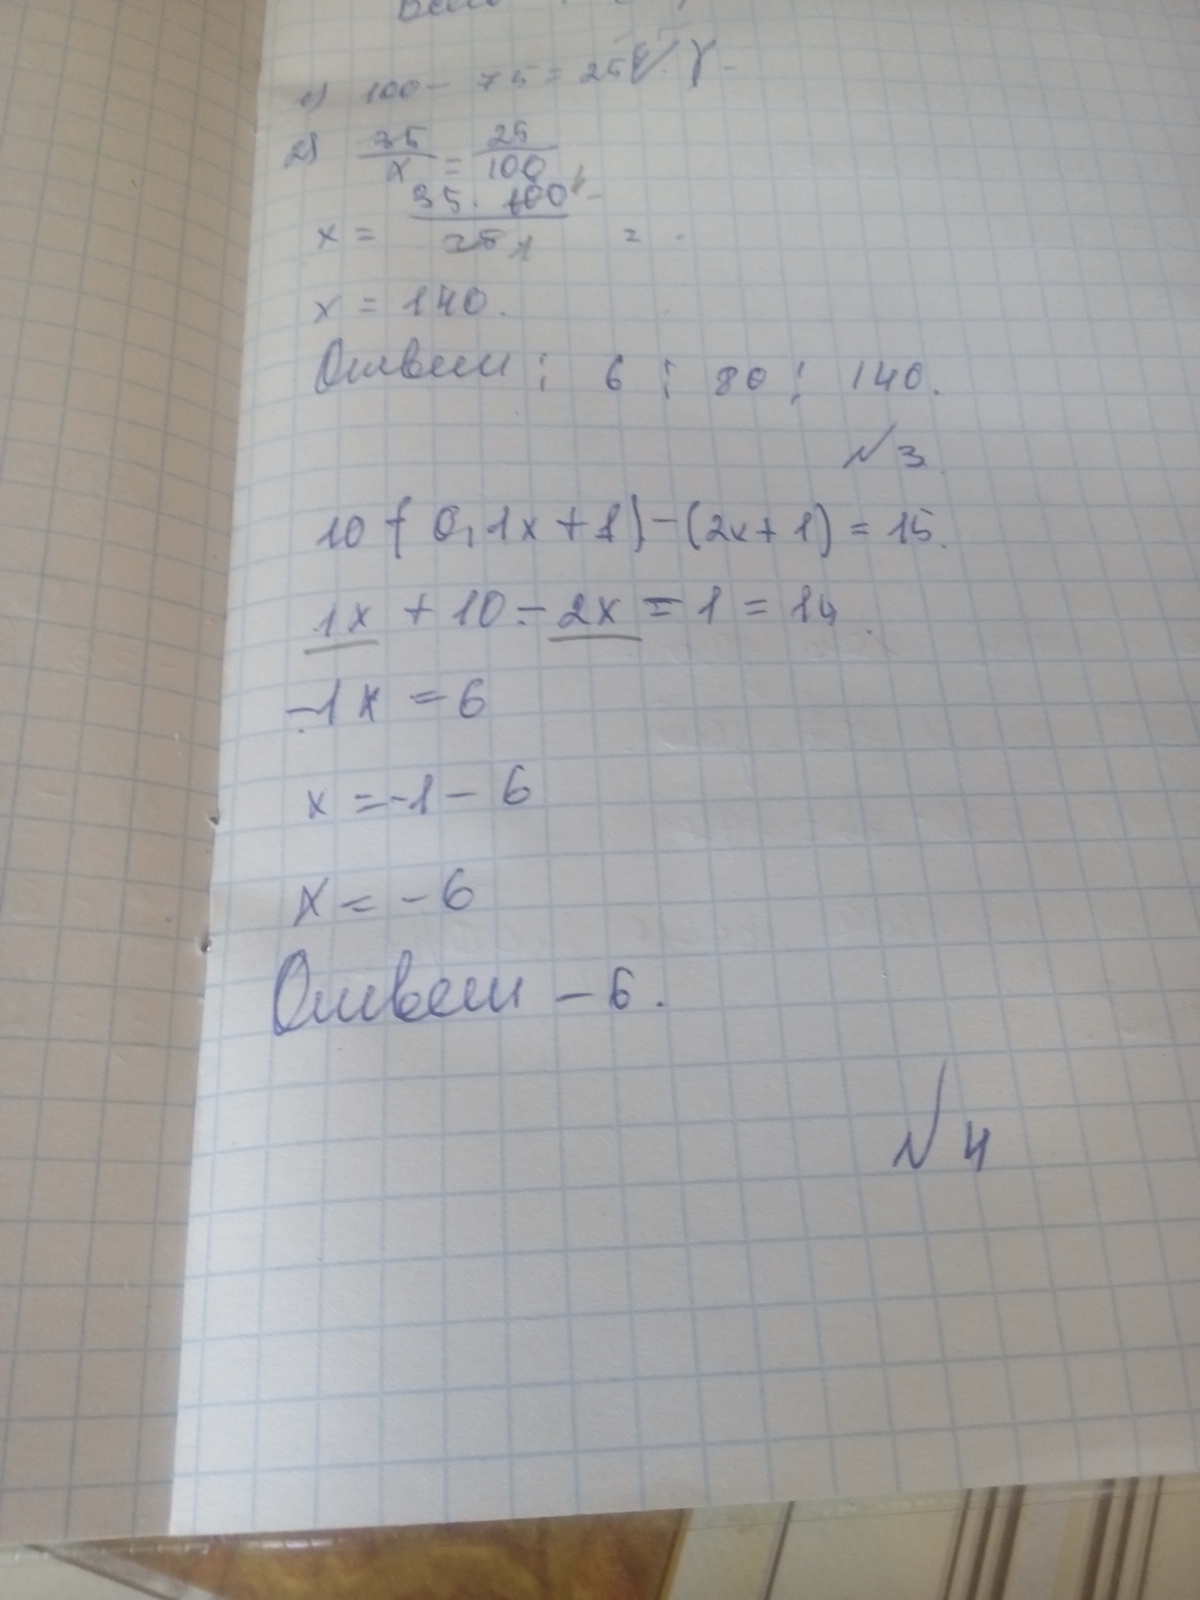 1) 100 - 75 = 25
2) 35/x = 25/100
x = 35 · 100/25 1 =
x = 140.
Ответ: 6; 80; 140.
№3
10(0,1x+1)-(2x+1) = 15.
1x + 10 - 2x = 1 = 14.
-1x = 6
x = -1 - 6
x = -6
Ответ -6.
№4